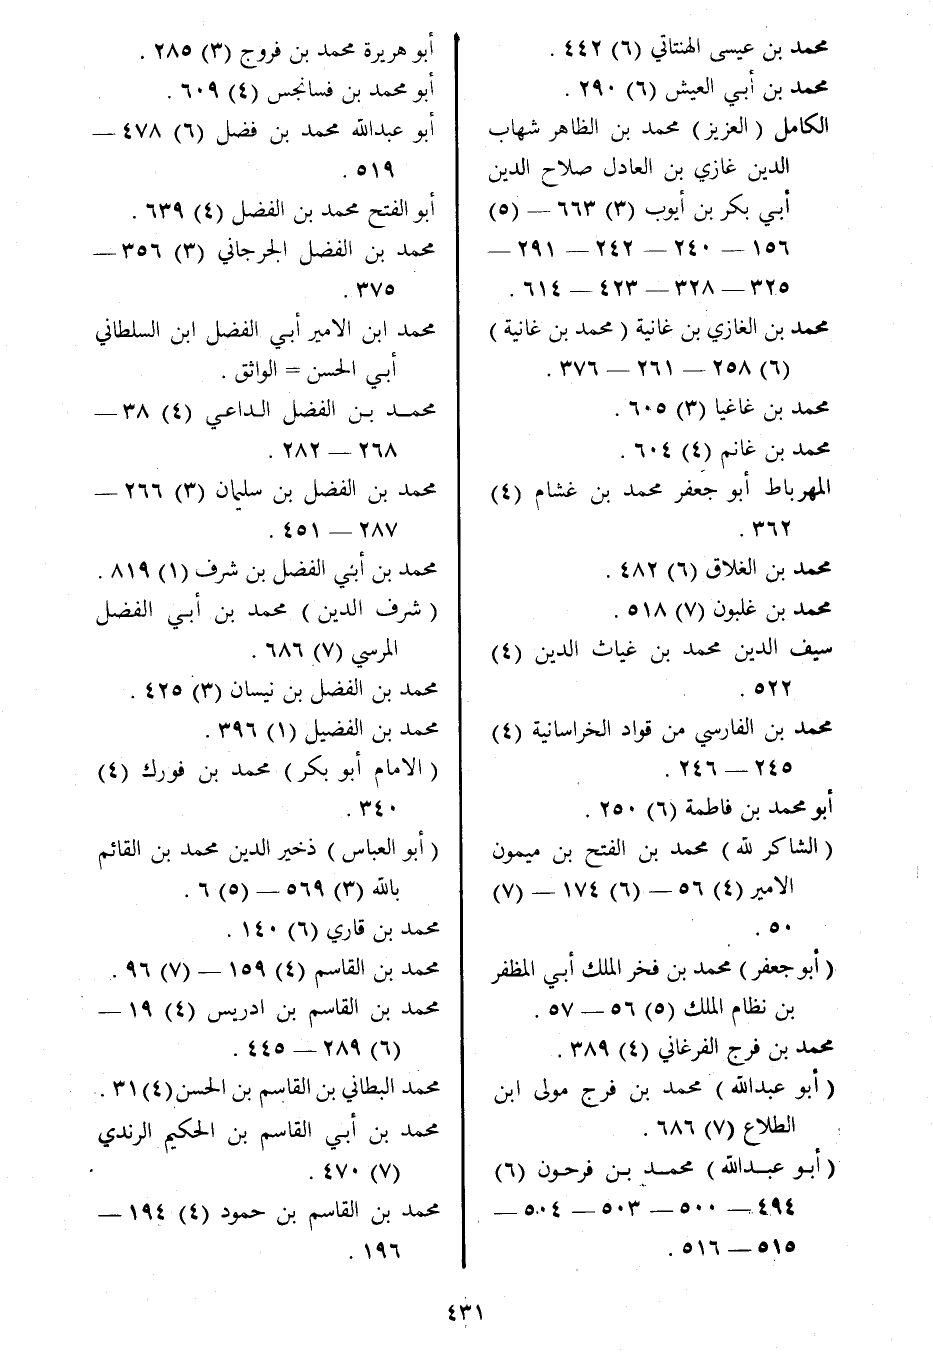 محمد بن عيسى الهنتاتي (٦) ٤٤٢ .
محمد بن أبي العيش (٦) ٢٩٠ .
الكامل ( العزيز ) محمد بن الظاهر شهاب
الدين غازي بن العادل صلاح الدين
أبي بكر بن أيوب (٣) ٦٦٣ — (٥)
١٥٦ — ٢٤٠ — ٢٤٢ — ٢٩١ —
٣٢٥ — ٣٢٨ — ٤٢٣ — ٦١٤ .
محمد بن الغازي بن غانية ( محمد بن غانية )
(٦) ٢٥٨ — ٢٦١ — ٣٧٦ .
محمد بن غاغيا (٣) ٦٠٥ .
محمد بن غانم (٤) ٦٠٤ .
المهرباط أبو جعفر محمد بن غشام (٤)
٣٦٢ .
محمد بن الغلاق (٦) ٤٨٢ .
محمد بن غلبون (٧) ٥١٨ .
سيف الدين محمد بن غياث الدين (٤)
٥٢٢ .
محمد بن الفارسي من قواد الخراسانية (٤)
٢٤٥ — ٢٤٦ .
أبو محمد بن فاطمة (٦) ٢٥٠ .
( الشاكر لله ) محمد بن الفتح بن ميمون
الامير (٤) ٥٦ — (٦) ١٧٤ — (٧)
٥٠ .
( أبو جعفر ) محمد بن فخر الملك أبي المظفر
بن نظام الملك (٥) ٥٦ — ٥٧ .
محمد بن فرج الفرغاني (٤) ٣٨٩ .
( أبو عبدالله ) محمد بن فرج مولى ابن
الطلاع (٧) ٦٨٦ .
( أبو عبدالله ) محمد بن فرحون (٦)
٤٩٤ — ٥٠٠ — ٥٠٣ — ٥٠٤ —
٥١٥ — ٥١٦ .
أبو هريرة محمد بن فروج (٣) ٢٨٥ .
أبو محمد بن فسانجس (٤) ٦٠٩ .
أبو عبدالله محمد بن فضل (٦) ٤٧٨ —
٥١٩ .
أبو الفتح محمد بن الفضل (٤) ٦٣٩ .
محمد بن الفضل الجرجاني (٣) ٣٥٦ —
٣٧٥ .
محمد ابن الامير أبي الفضل ابن السلطاني
أبي الحسن = الواثق .
محمد بن الفضل الداعي (٤) ٣٨ —
٢٦٨ — ٢٨٢ .
محمد بن الفضل بن سليمان (٣) ٢٦٦ —
٢٨٧ — ٤٥١ .
محمد بن أبي الفضل بن شرف (١) ٨١٩ .
( شرف الدين ) محمد بن أبي الفضل
المرسي (٧) ٦٨٦ .
محمد بن الفضل بن نيسان (٣) ٤٢٥ .
محمد بن الفضيل (١) ٣٩٦ .
( الامام أبو بكر ) محمد بن فورك (٤)
٣٤٠ .
( أبو العباس ) ذخير الدين محمد بن القائم
بالله (٣) ٥٦٩ — (٥) ٦ .
محمد بن قاري (٦) ١٤٠ .
محمد بن القاسم (٤) ١٥٩ — (٧) ٩٦ .
محمد بن القاسم بن ادريس (٤) ١٩ —
(٦) ٢٨٩ — ٤٤٥ .
محمد البطاني بن القاسم بن الحسن (٤) ٣١ .
محمد بن أبي القاسم بن الحكيم الرندي
(٧) ٤٧٠ .
محمد بن القاسم بن حمود (٤) ١٩٤ —
١٩٦ .
٤٣١